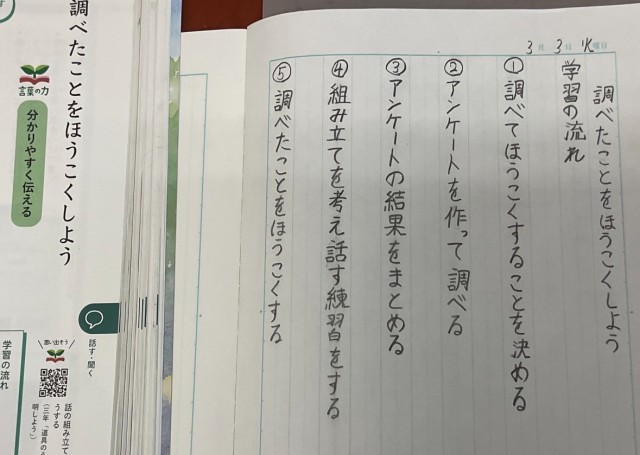 3月3日火曜日
調べたことをほうこくしよう
学習の流れ
①調べてほうこくすることを決める
②アンケートを作って調べる
③アンケートの結果をまとめる
④組み立てを考え話す練習をする
⑤調べたことをほうこくする
調べたことをほうこくしよう
言葉の力
分かりやすく伝える
話す・聞く
思い出そう
話の組み立て
うする
(三年「道具のう
明しよう」)
学習の流れ